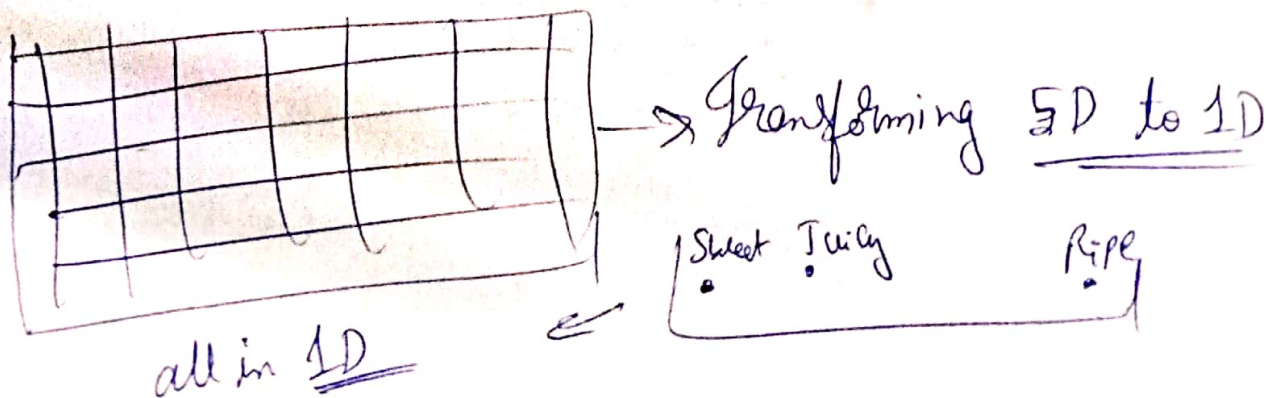 Transforming 5D to 1D
Sweet Juicy Ripe
all in 1D